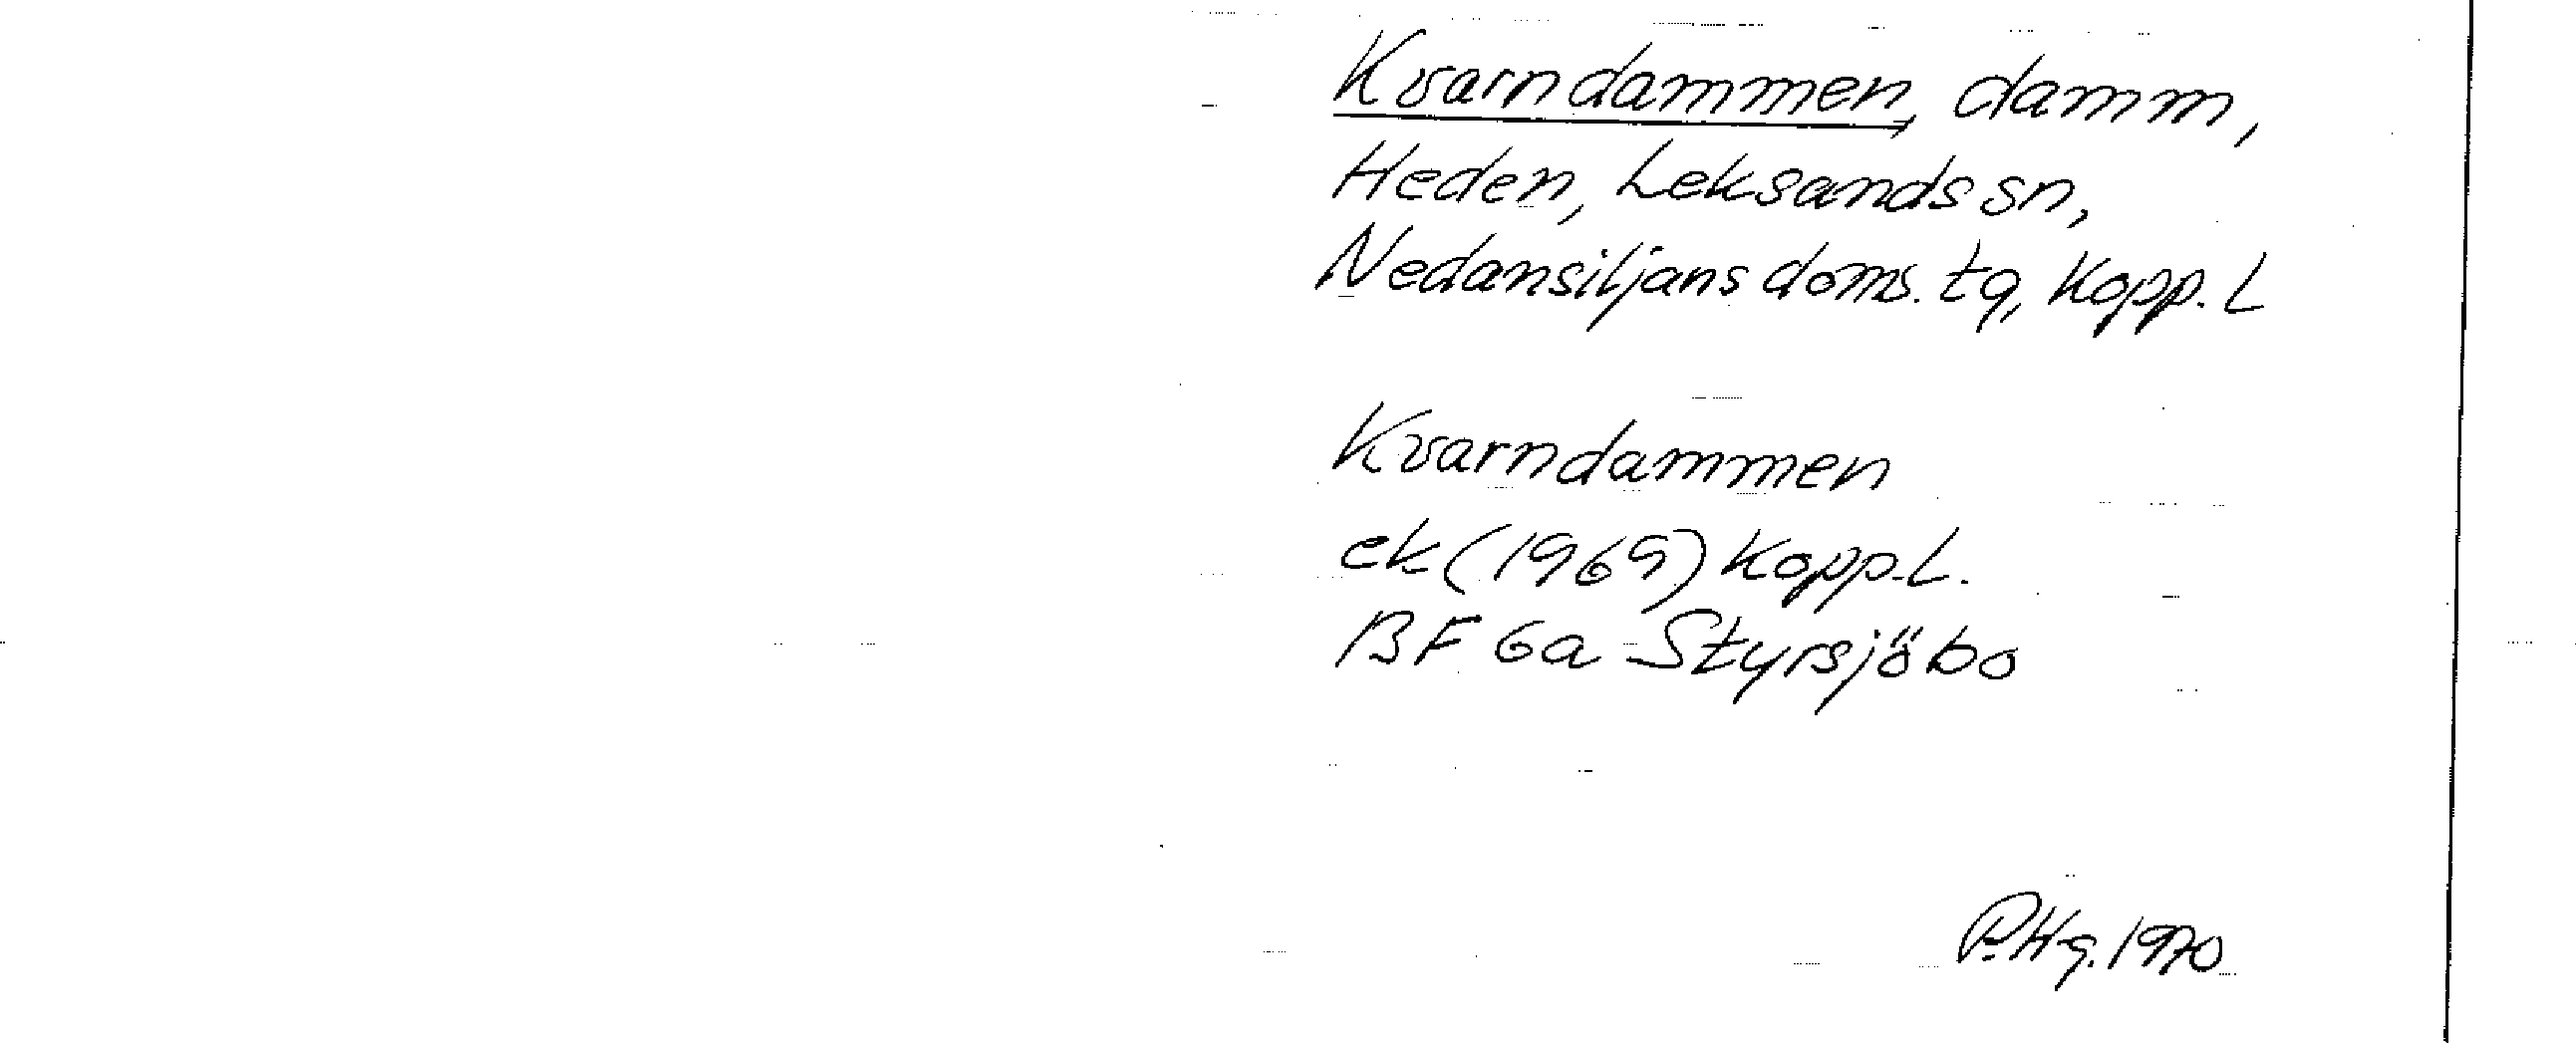 Kvarndammen, damm,
Heden, Leksands sn,
Nedansiljans doms. tg, Kopp. L
Kvarndammen
ek (1969) Kopp. L.
BF 6a Styrsjöbo
P.Hg. 1970